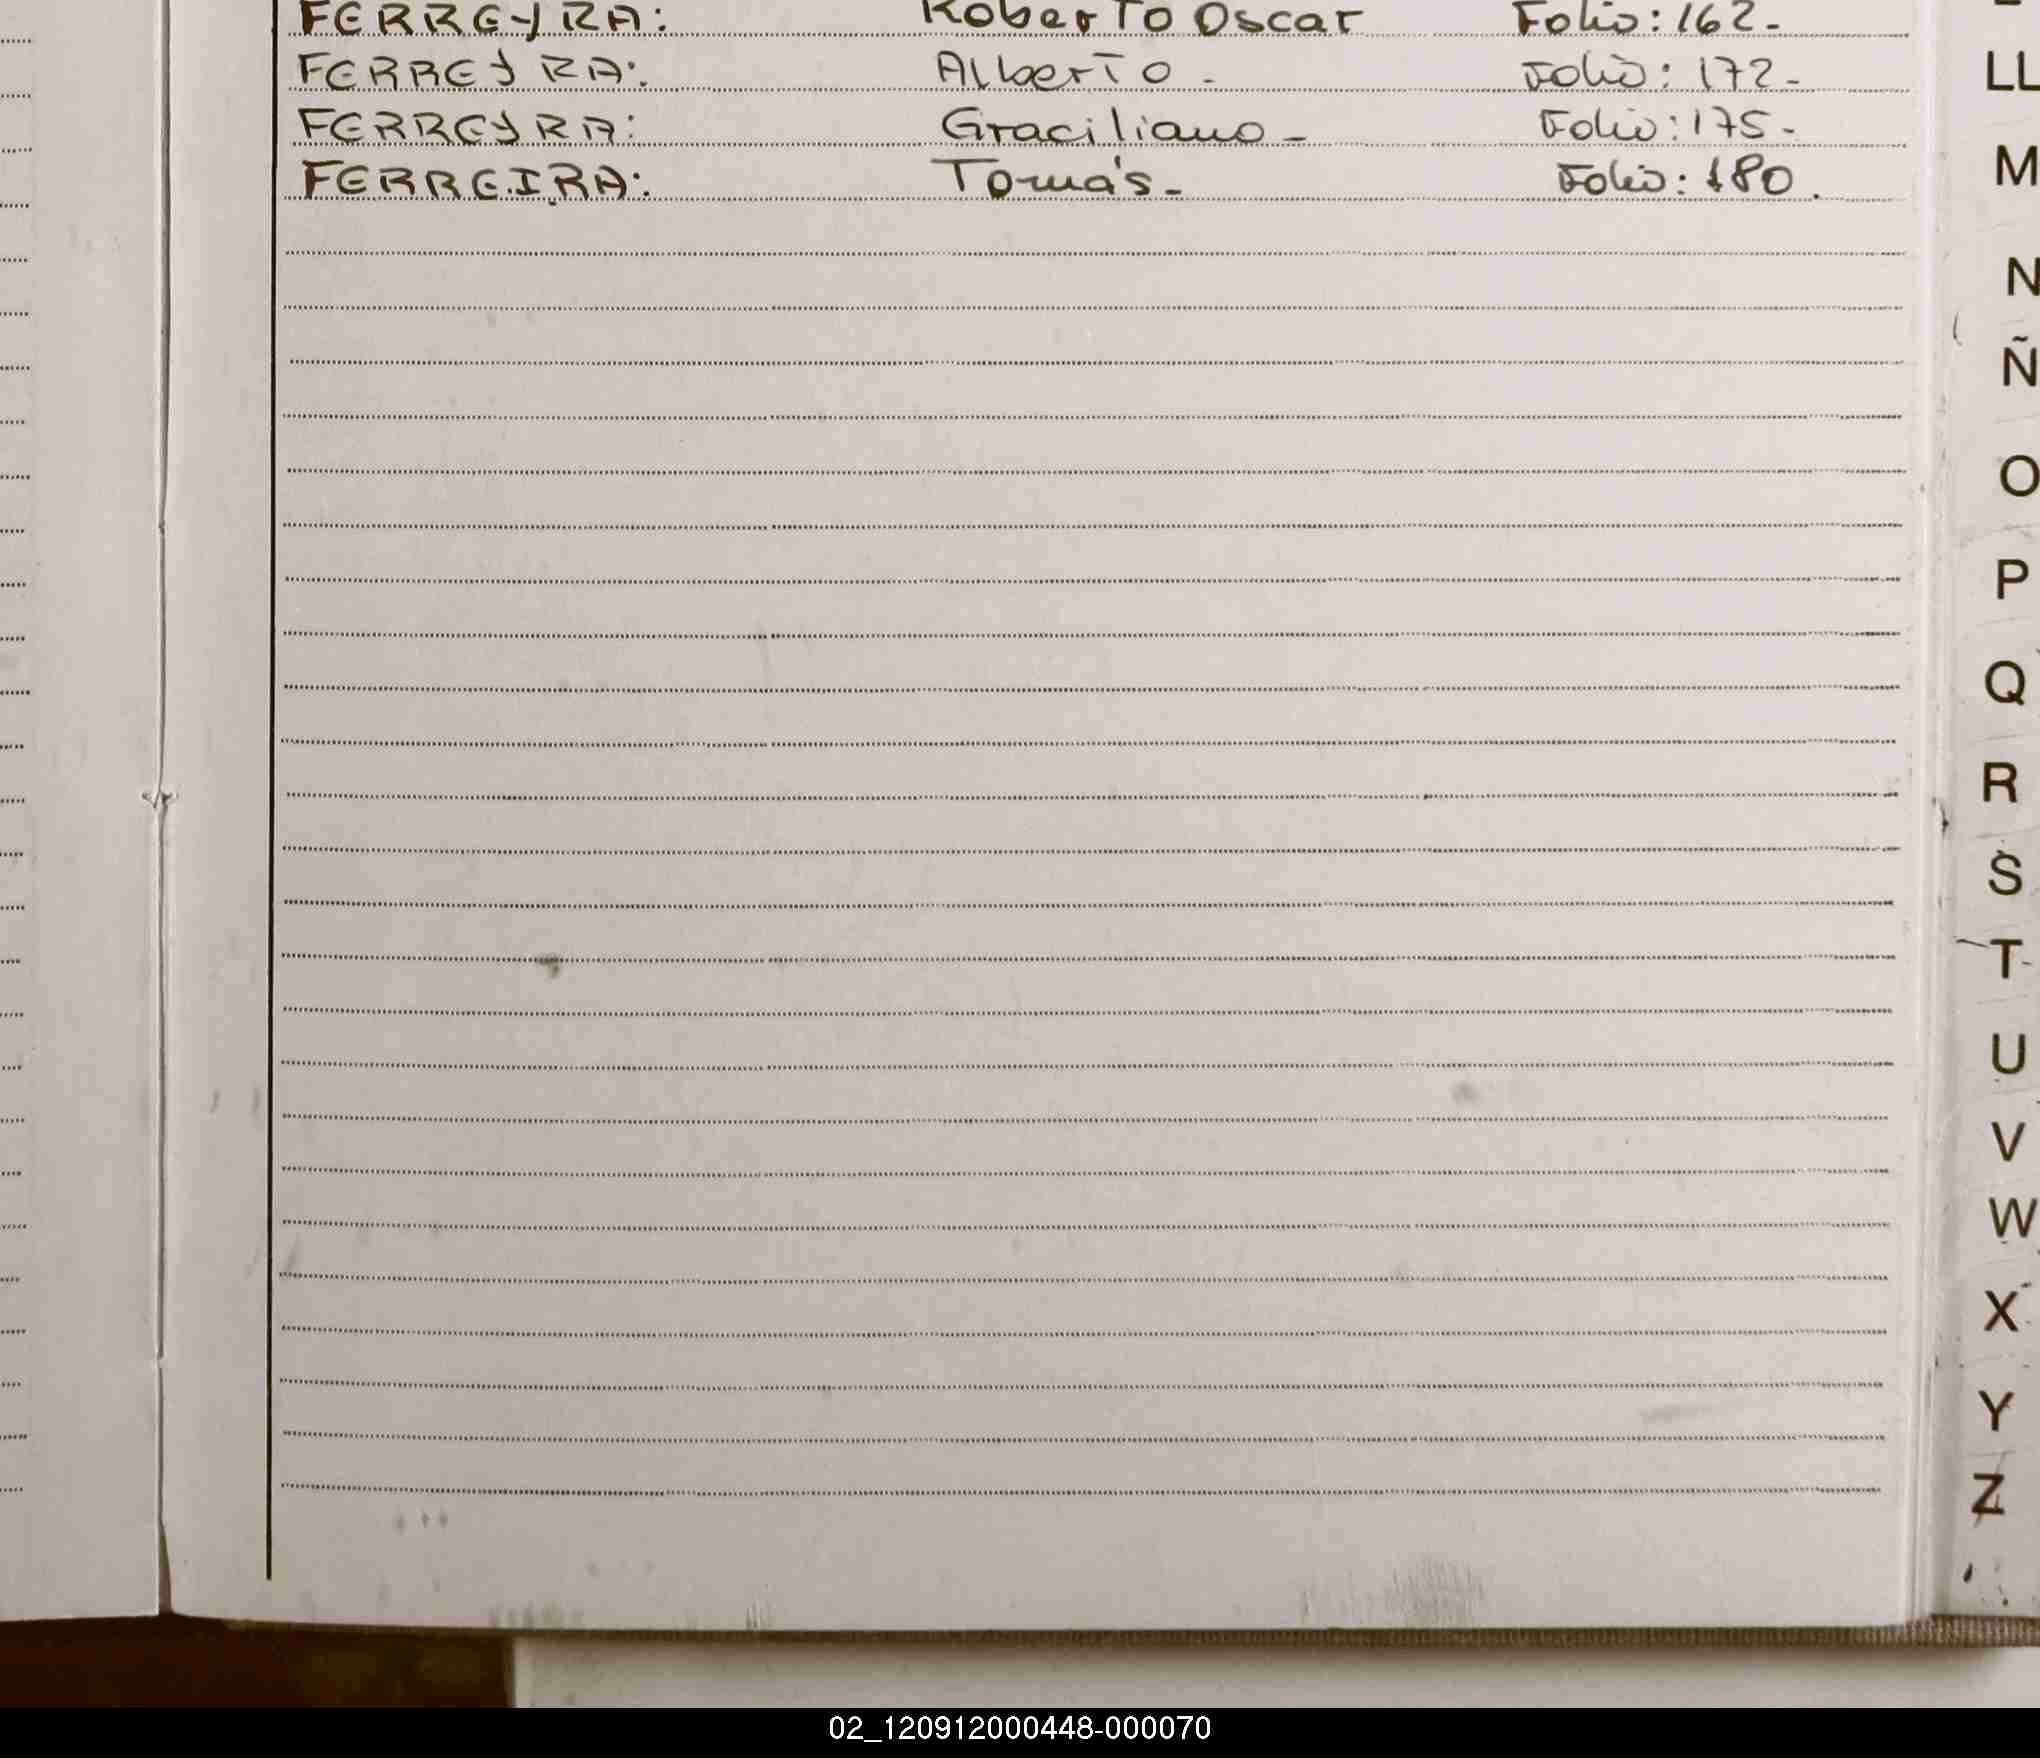 FERREYRA: Roberto Oscar Folio: 162-
FERREYRA: Alberto - Folio: 172-
FERREYRA: Graciliano - Folio: 175-
FERREIRA: Tomás - Folio: 180.
LL
M
N
Ñ
O
P
Q
R
S
T
U
V
W
X
Y
Z
02_120912000448-000070